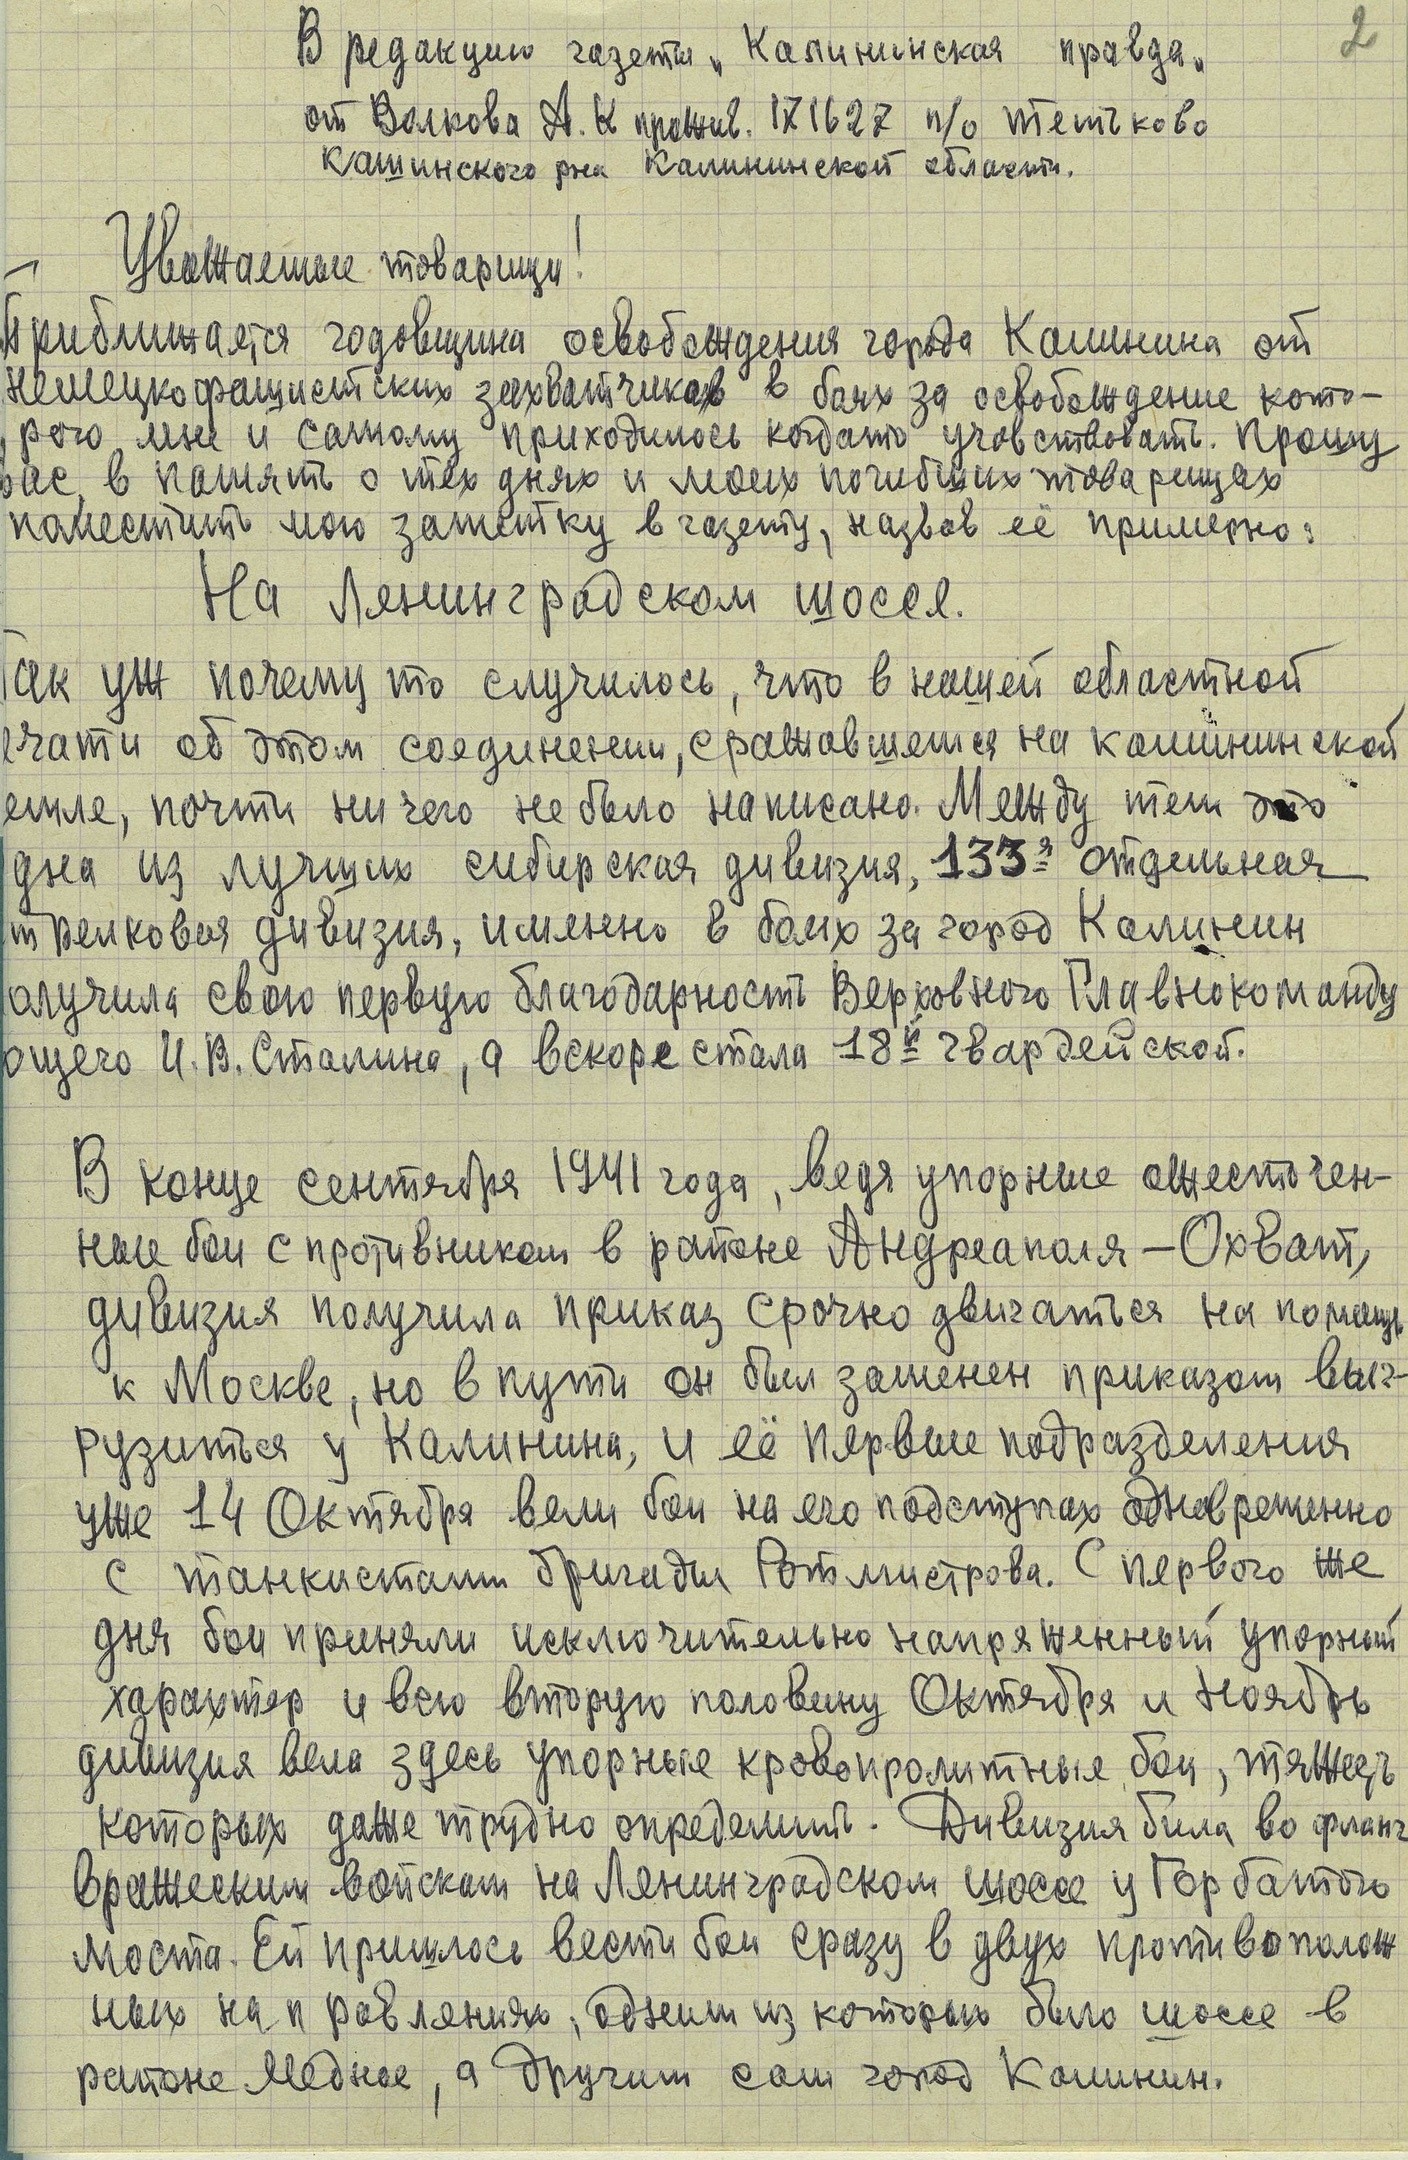 2
В редакцию газеты „Калининская правда„
от Волкова А. К прожив. 171627 п/о Тетьково
Кашинского рна Калининской области.
Уважаемые товарищи!
Приближается годовщина освобождения города Калинина от
немецкофашистских захватчиков в боях за освобождение кото-
рого мне и самому приходилось когдато учавствовать. Прошу
вас, в память о тех днях и моих погибших товарищах
поместить мою заметку в газету, назвав её примерно:
На Лянинградском шоссе.
Так уж почему то случилось, что в нашей областной
ечати об этом соединении, сражавшемся на калининской
емле, почти ничего не было написано. Между тем это
дна из лучших сибирская дивизия, 133я отдельная
трелковая дивизия, имянно в боях за город Калинин
олучила свою первую благодарность Верховного Главнокоманду
ющего И. В. Сталина, а вскоре стала 18й гвардейской.
В конце сентября 1941 года, ведя упорные ожесточен-
ные бои с противником в районе Андреаполя – Охват,
дивизия получила приказ срочно двигаться на помощь
к Москве, но в пути он был заменен приказом выг-
рузиться у Калинина, и её первые подразделения
уже 14 Октября вели бои на его подступах одноврёменно
с танкистами бригады Ротмистрова. С первого же
дня бои приняли исключительно напряженный упорный
характер и всю вторую половину Октября и Ноябрь
дивизия вела здесь упорные кровопролитные бои, тяжесть
которых даже трудно определить. Дивизия била во фланг
вражеским войскам на Лянинградском шоссе у Горбатого
моста. Ей пришлось вести бои сразу в двух противополож
ных направлениях, одним из которых было шоссе в
районе Медное, а другим сам город Калинин.